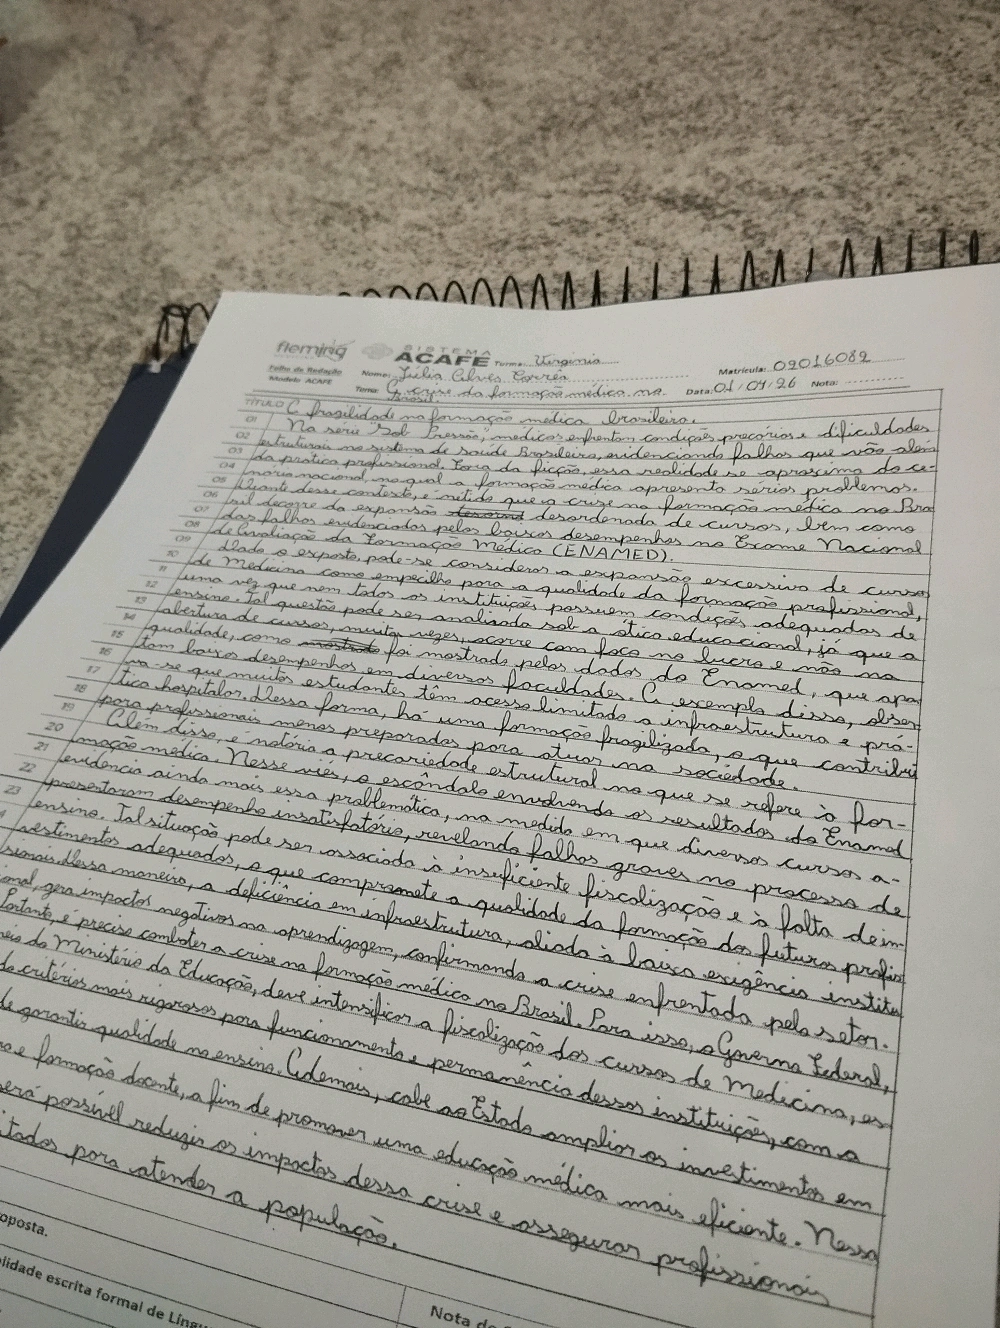 fleming SISTEMA ACAFE Turma: Virgínia
Folha de Redação Modelo ACAFE Nome: Júlia Alves Corrêa Matrícula: 09016082
Tema: A crise da formação médica no Brasil Data: 01/04/26 Nota:
TÍTULO A fragilidade na formação médica brasileira.
01 Na série "Sob Pressão", médicos enfrentam condições precárias e dificuldades
02 estruturais no sistema de saúde Brasileiro, evidenciando falhas que vão além
03 da prática profissional. Fora da ficção, essa realidade se aproxima do ce-
04 nário nacional, no qual a formação médica apresenta sérios problemas.
05 Diante desse contexto, é nítido que a crise na formação médica no Bra
06 sil decorre da expansão desordenada de cursos, bem como
07 das falhas evidenciadas pelos baixos desempenhos no Exame Nacional
08 de Avaliação da Formação Médica (ENAMED).
09 Dado o exposto, pode-se considerar a expansão excessiva de cursos
10 de Medicina como empecilho para a qualidade da formação profissional,
11 uma vez que nem todas as instituições possuem condições adequadas de
12 ensino. Tal questão pode ser analisada sob a ótica educacional, já que a
13 abertura de cursos, muitas vezes, ocorre com foco no lucro e não na
14 qualidade, como foi mostrado pelos dados do Enamed, que apon
15 tam baixos desempenhos em diversas faculdades. A exemplo disso, obser
16 va-se que muitos estudantes têm acesso limitado a infraestrutura e prá-
17 tica hospitalar. Dessa forma, há uma formação fragilizada, o que contribui
18 para profissionais menos preparados para atuar na sociedade.
19 Além disso, é notória a precariedade estrutural no que se refere à for-
20 mação médica. Nesse viés, o escândalo envolvendo os resultados do Enamed
21 evidencia ainda mais essa problemática, na medida em que diversos cursos a-
22 presentaram desempenho insatisfatório, revelando falhas graves no processo de
23 ensino. Tal situação pode ser associada à insuficiente fiscalização e à falta de in
vestimentos adequados, o que compromete a qualidade da formação dos futuros profis
sionais. Dessa maneira, a deficiência em infraestrutura, aliada à baixa exigência institu
ional, gera impactos negativos na aprendizagem, confirmando a crise enfrentada pelo setor.
Portanto, é preciso combater a crise na formação médica no Brasil. Para isso, o Governo Federal,
do Ministério da Educação, deve intensificar a fiscalização dos cursos de Medicina, es
critérios mais rigorosos para funcionamento e permanência dessas instituições, com a
de garantir qualidade no ensino. Ademais, cabe ao Estado ampliar os investimentos em
e formação docente, a fim de promover uma educação médica mais eficiente. Nessa
será possível reduzir os impactos dessa crise e assegurar profissionais
itados para atender a população.
oposta.
alidade escrita formal de Língu
Nota do